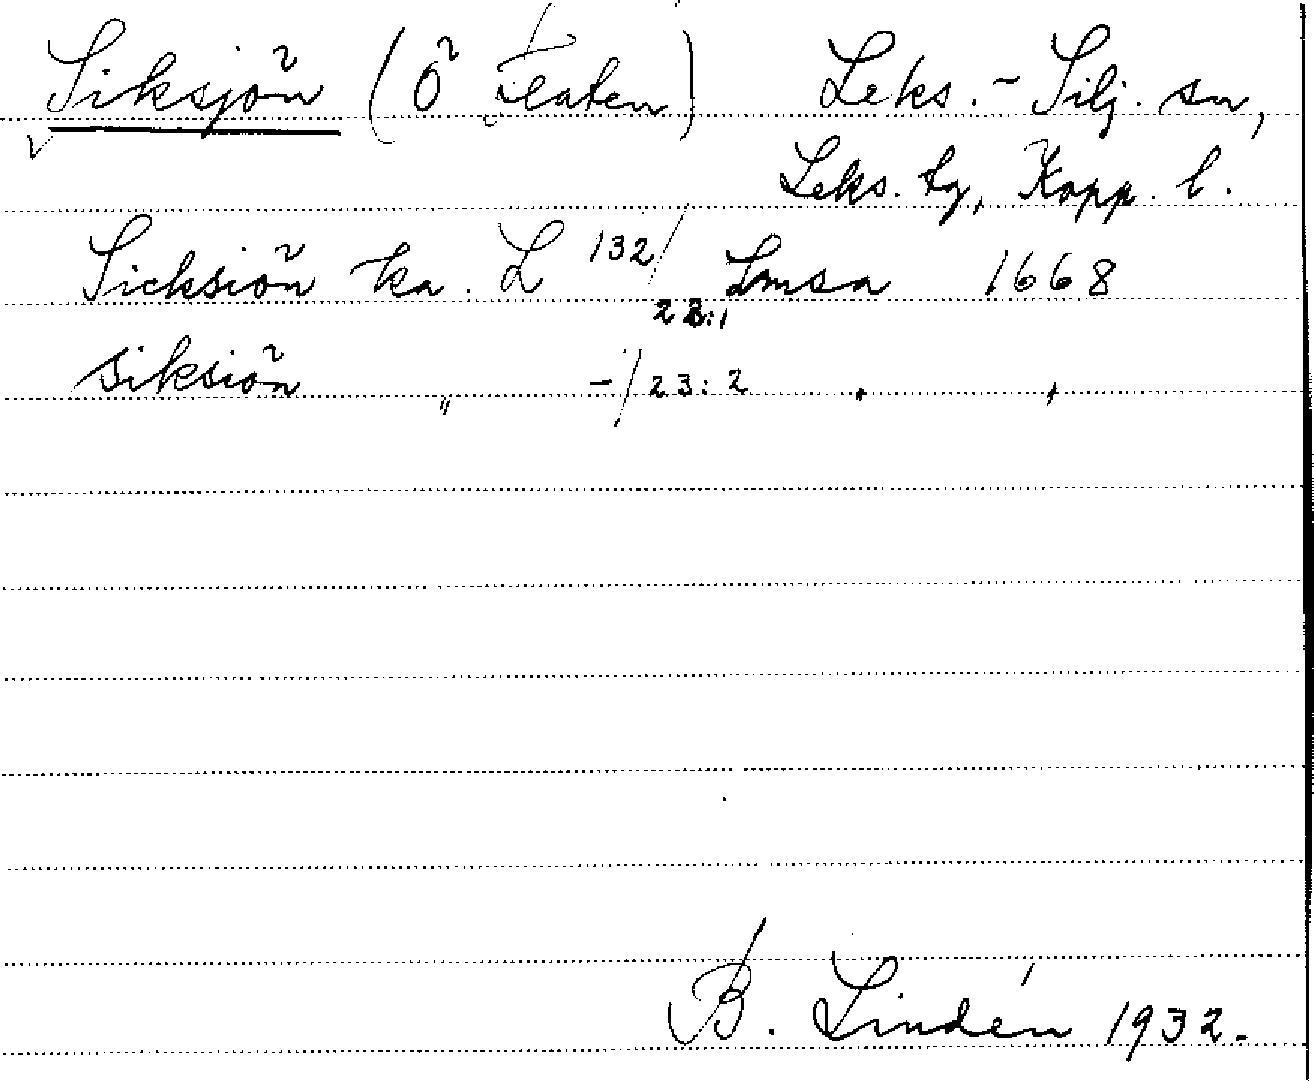 Siksjön (Ö Flaten) Leks.-Silj. sn,
Leks. tg, Kopp. l.
Sicksiön ka. L 132/23:1 Lmsa 1668
siksiön " -/23:2 " "
B. Lindén 1932.